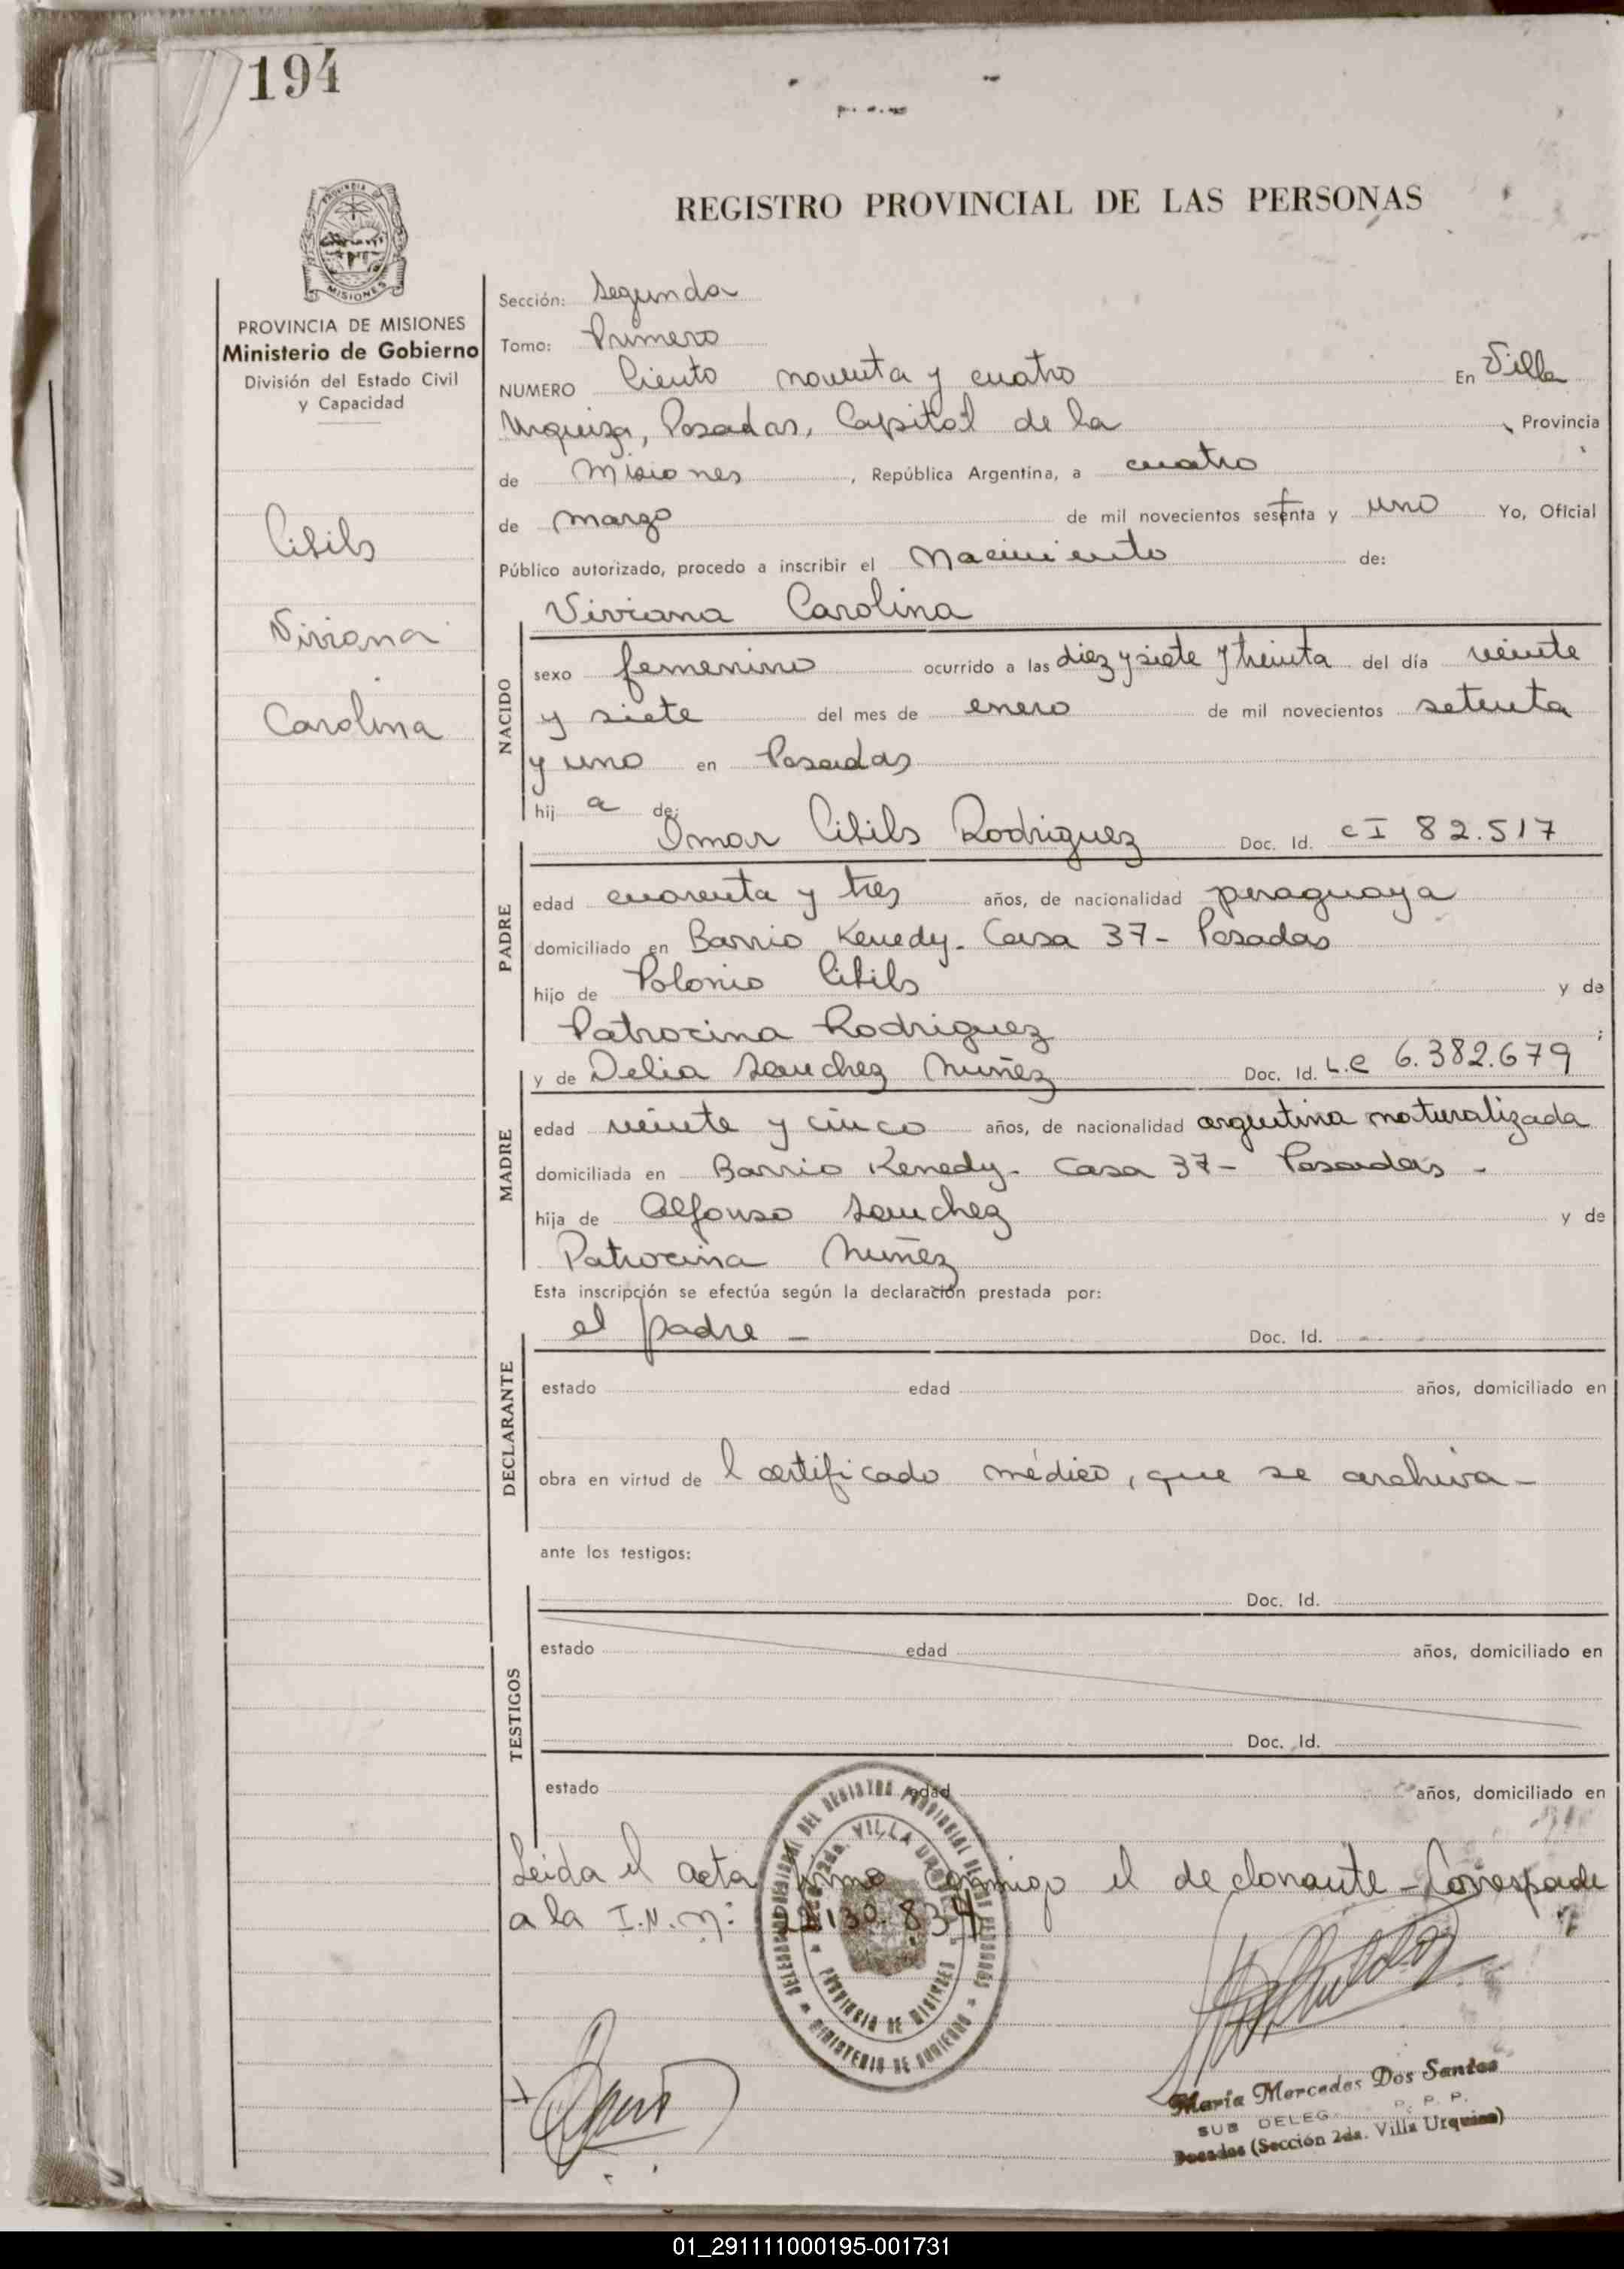 194
REGISTRO PROVINCIAL DE LAS PERSONAS
MISIONES
PROVINCIA DE MISIONES
Ministerio de Gobierno
División del Estado Civil
y Capacidad
Cibils
Viviana
Carolina
Sección: Segunda
Tomo: Primero
NUMERO Ciento noventa y cuatro En Villa
Urquiza, Posadas, Capital de la , Provincia
de Misiones , República Argentina, a cuatro
de marzo de mil novecientos sesenta y uno Yo, Oficial
Público autorizado, procedo a inscribir el Nacimiento de:
Viviana Carolina
NACIDO
sexo femenino ocurrido a las diez y siete y treinta del día veinte
y siete del mes de enero de mil novecientos setenta
y uno en Posadas
hij a de:
Omar Cibils Rodriguez Doc. Id. CI 82.517
PADRE
edad cuarenta y tres años, de nacionalidad paraguaya
domiciliado en Barrio Kenedy - Casa 37 - Posadas
hijo de Polonio Cibils y de
Patrocina Rodriguez ;
y de Delia Sanchez Nuñez Doc. Id. L.C 6.382.679
MADRE
edad veinte y cinco años, de nacionalidad argentina naturalizada
domiciliada en Barrio Kenedy - Casa 37 - Posadas -
hija de Alfonso Sanchez y de
Patrocina Nuñez
Esta inscripción se efectúa según la declaración prestada por:
el padre - Doc. Id.
DECLARANTE
estado edad años, domiciliado en
obra en virtud de l certificado médico, que se archiva -
ante los testigos:
Doc. Id.
TESTIGOS
estado edad años, domiciliado en
Doc. Id.
estado edad años, domiciliado en
Leida el acta firma conmigo el declarante - Corresponde
a la I.N. Nº: 22.130.834
DELEGACION DEL REGISTRO PROVINCIAL DE LAS PERSONAS
2da. VILLA URQUIZA
PROVINCIA DE MISIONES
MINISTERIO DE GOBIERNO
María Mercedes Dos Santos
SUB DELEG. P. P.
Posadas (Sección 2da. Villa Urquiza)
01_291111000195-001731